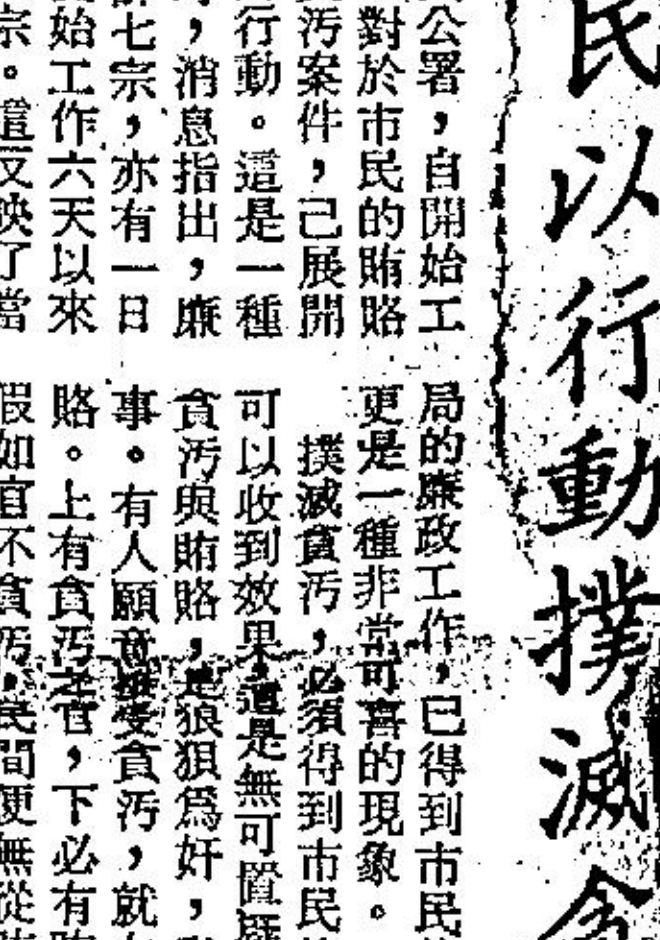 民以行動撲滅貪
公署，自開始工
對於市民的賄賂
污案件，己展開
行動。這是一種
，消息指出，廉
七宗，亦有一日
始工作六天以來
宗。這反映了當
局的廉政工作，已得到市民
更是一種非常可喜的現象。
撲滅貪污，必須得到市民
可以收到效果，這是無可置疑
貪污與賄賂，是狼狽為奸，
事。有人願意接受貪污，就
賂。上有貪污之官，下必有
假如官不貪污，民間便無從